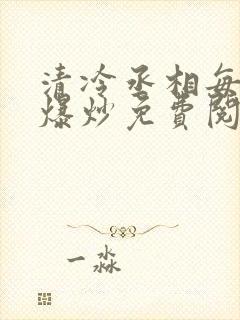 清冷丞相每
爆炒免费阅
一淼